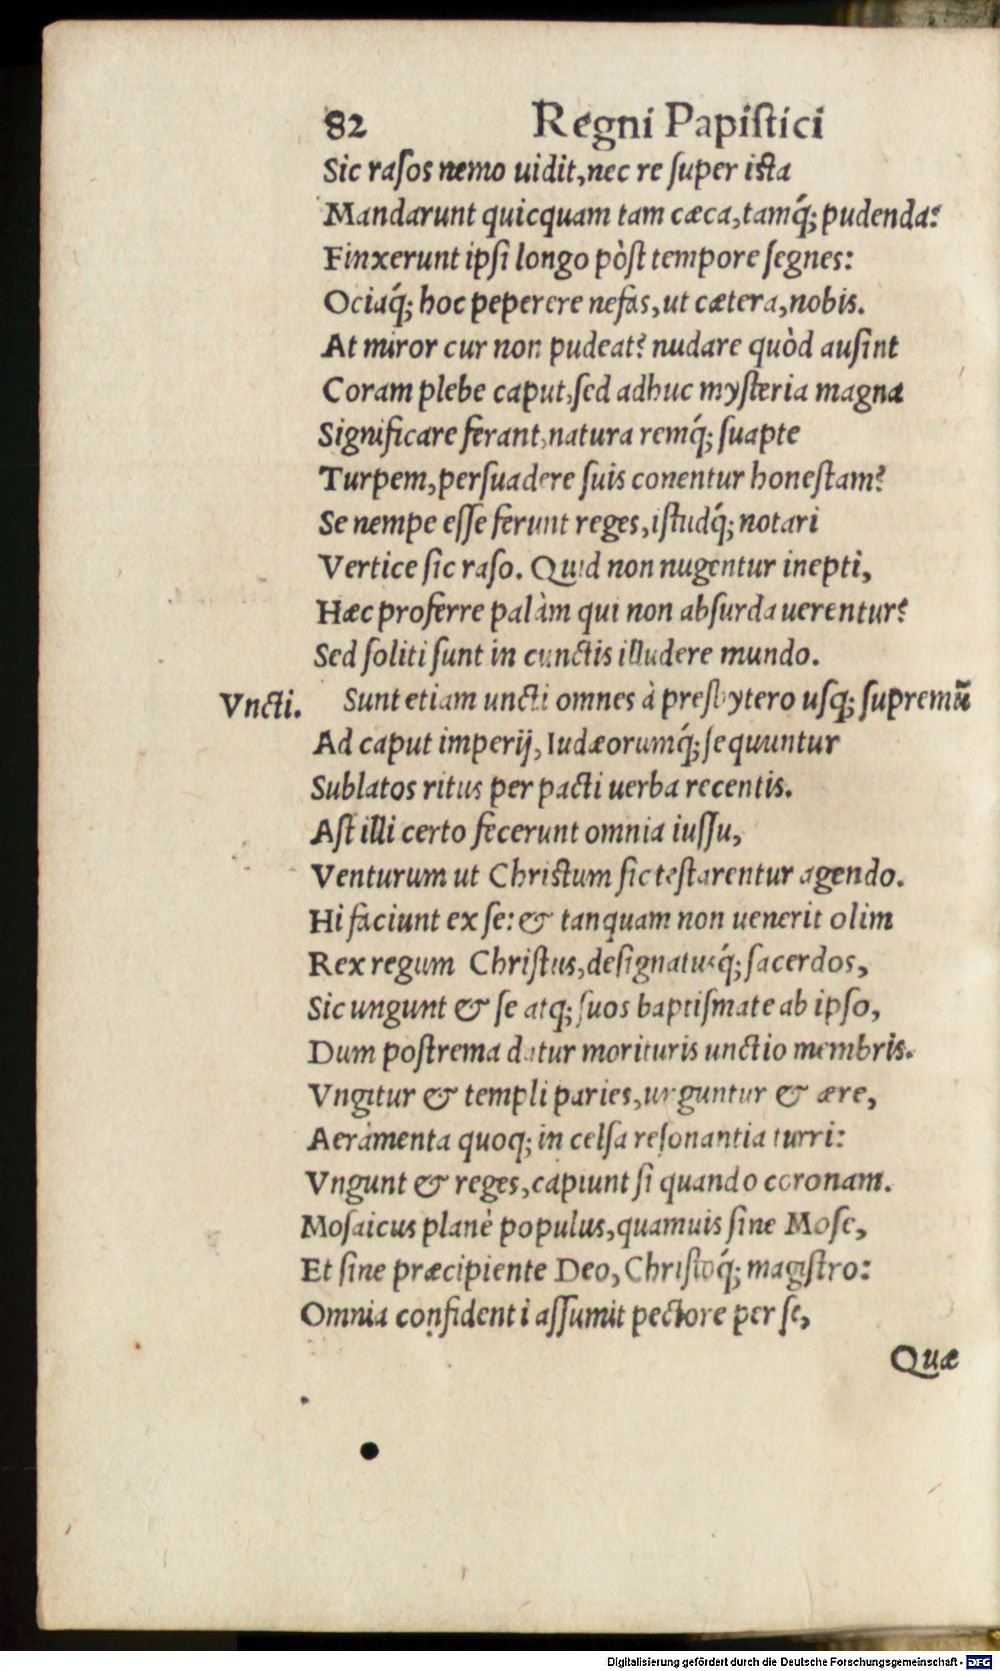 82 Regni Papiſtici
Sic raſos nemo uidit, nec re ſuper iſta
Mandarunt quicquam tam cæca, tamq́; pudenda?
Finxerunt ipſi longo pòſt tempore ſegnes:
Ociaq́; hoc peperere nefas, ut cætera, nobis.
At miror cur non pudeat? nudare quòd auſint
Coram plebe caput, ſed adhuc myſteria magna
Significare ferant, natura remq́; ſuapte
Turpem, perſuadere ſuis conentur honeſtam?
Se nempe eſſe ferunt reges, iſtudq́; notari
Vertice ſic raſo. Quid non nugentur inepti,
Hæc proferre palàm qui non abſurda uerentur?
Sed ſoliti ſunt in cunctis illudere mundo.
Vncti. Sunt etiam uncti omnes à presbytero uſq; ſupremũ
Ad caput imperij, Iudæorumq́; ſequuntur
Sublatos ritus per pacti uerba recentis.
Aſt illi certo fecerunt omnia iuſſu,
Venturum ut Chriſtum ſic teſtarentur agendo.
Hi faciunt ex ſe: & tanquam non uenerit olim
Rex regum Chriſtus, deſignatusq́; ſacerdos,
Sic ungunt & ſe atq; ſuos baptiſmate ab ipſo,
Dum poſtrema datur morituris unctio membris.
Vngitur & templi paries, unguntur & ære,
Aeramenta quoq; in celſa reſonantia turri:
Vngunt & reges, capiunt ſi quando coronam.
Moſaicus planè populus, quamuis ſine Moſe,
Et ſine præcipiente Deo, Chriſtoq́; magiſtro:
Omnia confidenti aſſumit pectore per ſe,
Quæ
Digitalisierung gefördert durch die Deutsche Forschungsgemeinschaft - DFG